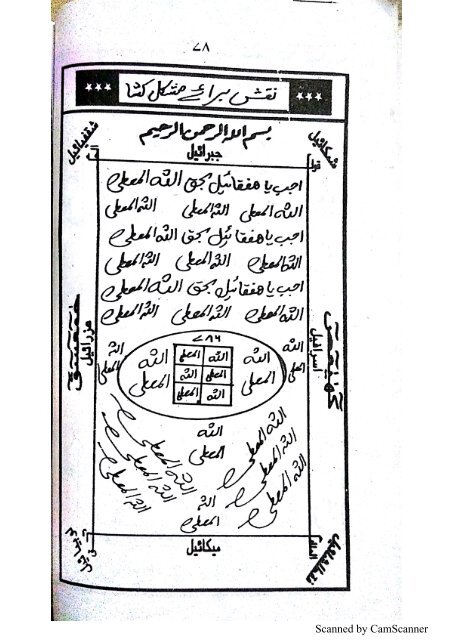 ۷۸
نقش برائے مشکل کشا
بسم اللہ الرحمن الرحیم
جبرائیل
اجب یا هفقائیل بحق اللہ المعطی
اللہ المعطی اللہ المعطی اللہ المعطی
اجب یا هفقائیل بحق اللہ المعطی
اللہ المعطی اللہ المعطی اللہ المعطی
اجب یا هفقائیل بحق اللہ المعطی
اللہ المعطی اللہ المعطی اللہ المعطی
حمعسق
عزرائیل
کھیعص
اسرافیل
اللہ المعطی
اللہ المعطی
۷۸۶
اللہ المعطی
المعطی اللہ
اللہ المعطی
اللہ المعطی
اللہ المعطی
اللہ المعطی
اللہ المعطی
اللہ المعطی
اللہ المعطی
اللہ المعطی
اللہ المعطی
اللہ المعطی
اللہ المعطی
اللہ المعطی
میکائیل
Scanned by CamScanner